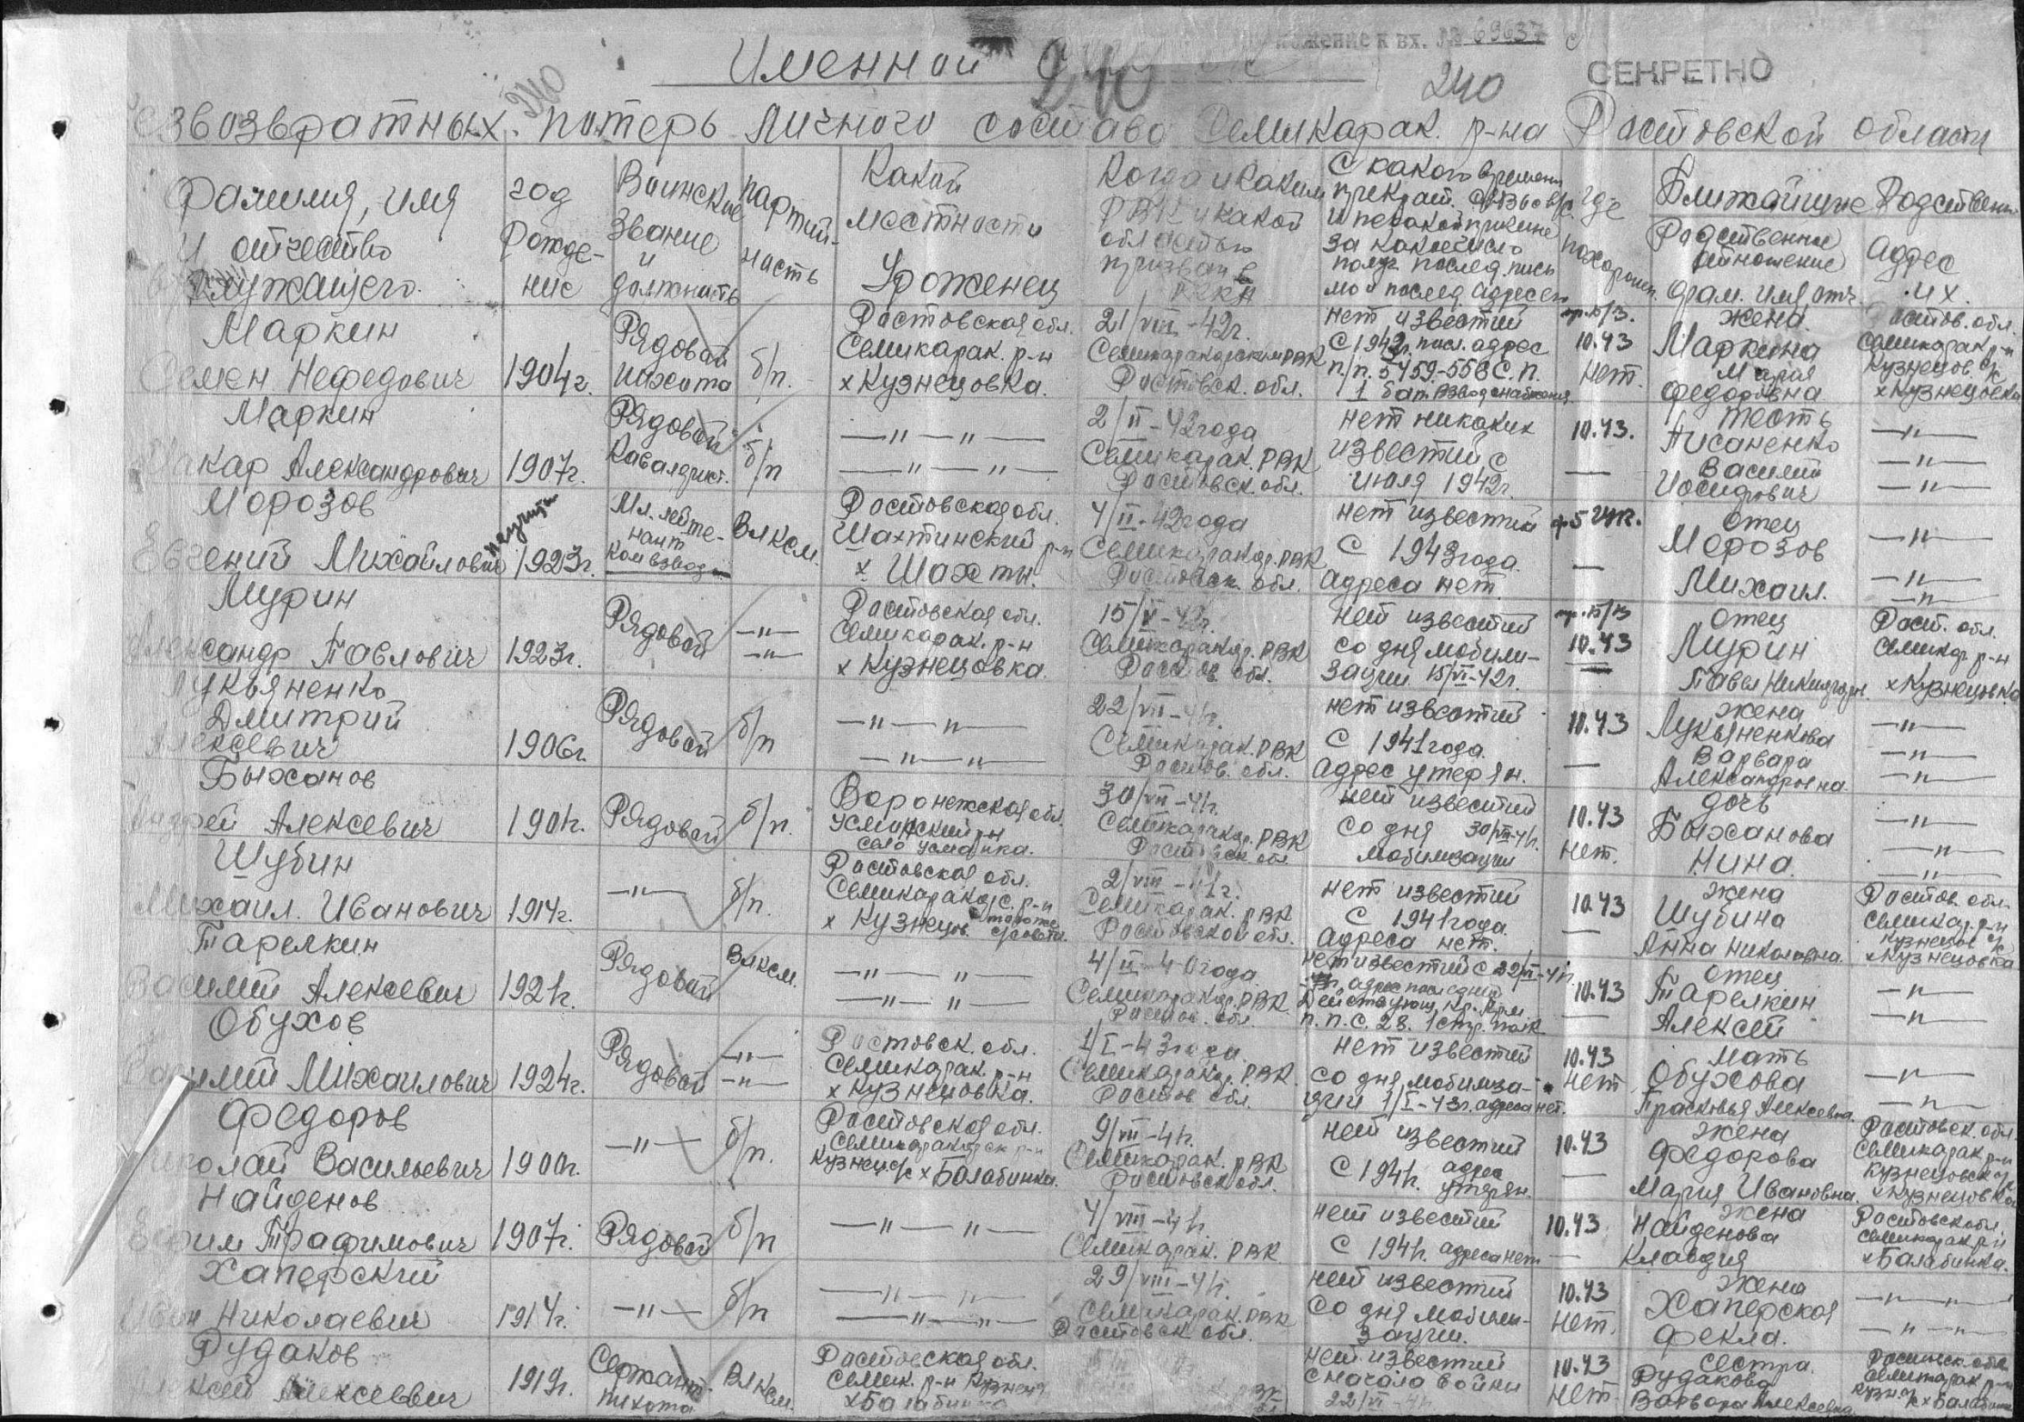 Приложение к вх. № 69637 с
Именной
240
240
240
СЕКРЕТНО
безвозвратных потерь личного состава Семикарак. р-на Ростовской области
Фамилия, имя и отчество служащего
год рождение
Воинское звание и должность
партийность
Какой местности Уроженец
Когда и каким РВК и какой областью призван в РККА
С какого времени прекрат. связь и по какой причине за какое число получ. послед. письмо и послед. адрес его
где похоронен
Ближайшие Родственн
Родственное отношение фам. имя отч.
Адрес их.
Маркин Семен Нефедович
1904г.
Рядовой пехота
б/п.
Ростовская обл. Семикарак. р-н х Кузнецовка.
21/VIII-42г. Семикаракорским РВК Ростовск. обл.
нет известий с 1942г. посл. адрес п/п. 5459-558 С.П. 1 бат. взвод снабжения
пр.б/в. 10.43 нет.
жена Маркина Мария Федоровна
Ростов. обл. Семикарак р-н Кузнецов. с/с х Кузнецовка
Маркин Макар Александрович
1907г.
Рядовой Кавалерист.
б/п
—"—"—
—"—"—
2/II-42года Семикарак. РВК Ростовск. обл.
нет никаких известий с июля 1942г.
10.43. —
тесть Писаненко Василий Иосифович
—"—
—"—
—"—
Морозов Евгений Михайлович
1923г.
Мл. лейтенант ком взвода
Влксм.
Ростовская обл. Шахтинский р-н х Шахты.
4/II-42года Семикаракор. РВК Ростовск. обл.
нет известий с 1943года. адреса нет.
—
отец Морозов Михаил.
—"—
—"—
—"—
Мурин Александр Павлович
1923г.
Рядовой
—"—
—"—
Ростовская обл. Семикарак. р-н х Кузнецовка
Семикаракор. РВК Ростов обл.
нет известий со дня мобилизации 15/VI-42г.
пр.б/в 10.43 —
отец Мурин Павел
Рост. обл. Семикар р-н х Кузнецовка
Лукьяненко Дмитрий Алексевич
1906г.
Рядовой
б/п
—"—"—
—"—"—
22/VII-41г. Семикарак. РВК Ростов. обл.
нет известий с 1941года. адрес утерян.
10.43 —
жена Лукьяненкова Варвара Александровна.
—"—
—"—
—"—
Быханов Андрей Алексевич
1901г.
Рядовой
б/п.
Воронежская обл. Усманский р-н село Усманка.
30/VII-41г. Семикаракор. РВК Ростовск. обл
нет известий со дня 30/VII-41г. мобилизации
10.43 нет.
дочь Быханова Нина.
—"—
—"—
—"—
Шубин Михаил. Иванович
1914г.
—"—
б/п.
Ростовская обл. Семикаракорс. р-н х Кузнецов.
2/VIII-41г. Семикарак. РВК Ростовской обл.
нет известий с 1941года. адреса нет.
10.43 —
жена Шубина Анна Николаевна.
Ростов. обл. Семикар. р-н Кузнецов с/с х Кузнецовка
Тарелкин Василий Алексевич
1921г.
Рядовой
Влксм.
—"—"—
—"—"—
4/II-40года. Семикаракор. РВК Ростов. обл.
нет известий с 22/VI-41г. адрес последний Действующ. Кр. Арм. п.п.с. 28. 1 стр. полк
10.43 —
отец Тарелкин Алексей
—"—
—"—
Обухов Василий Михаилович
1924г.
Рядовой
—"—
—"—
Ростовск. обл. Семикарак. р-н х Кузнецовка.
1/I-43года. Семикаракор. РВК. Ростов обл.
нет известий со дня мобилизации 1/I-43г. адреса нет.
10.43 нет
мать Обухова Прасковья Алексевна.
—"—
—"—
Федоров Николай Васильевич
1900г.
—"—
б/п.
Ростовская обл. Семикаракорск р-н Кузнец с/с х Балабинка.
9/VII-41г. Семикарак. РВК Ростовск обл.
нет известий с 1941г. адрес утерян.
10.43 —
жена Федорова Мария Ивановна.
Ростовск. обл. Семикарак р-н Кузнецовск с/с х Кузнецовка
Найденов Ефим Трафимович
1907г.
Рядовой
б/п
—"—"—
4/VIII-41г. Семикарак. РВК
нет известий с 1941г. адреса нет
10.43 —
жена Найденова Клавдия
Ростовск обл. Семикарак р-н х Балабинка.
Хаперский Иван Николаевич
1914г.
—"—
б/п
—"—"—
—"—"—
29/VIII-41г. Семикарак. РВК Ростовск обл.
нет известий со дня мобилизации.
10.43 нет.
жена Хаперская Фекла.
—"—"—
—"—"—
Рудаков Алексей Алексеевич
1919г.
Сержант. пехота
Влксм.
Ростовская обл. Семик. р-н Кузнец х Балабинка
РВК
нет известий с начала войны 22/VI-41г
10.43 нет.
сестра. Рудакова Варвара Алексевна
Ростовск обл Семикарак р-н Кузнец с/с х Балабинка